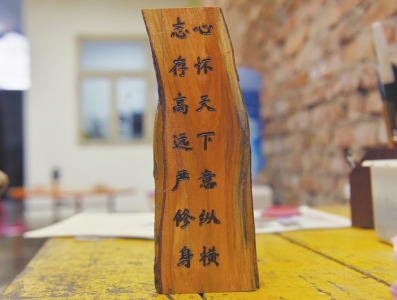 心怀天下意纵横
志存高远严修身